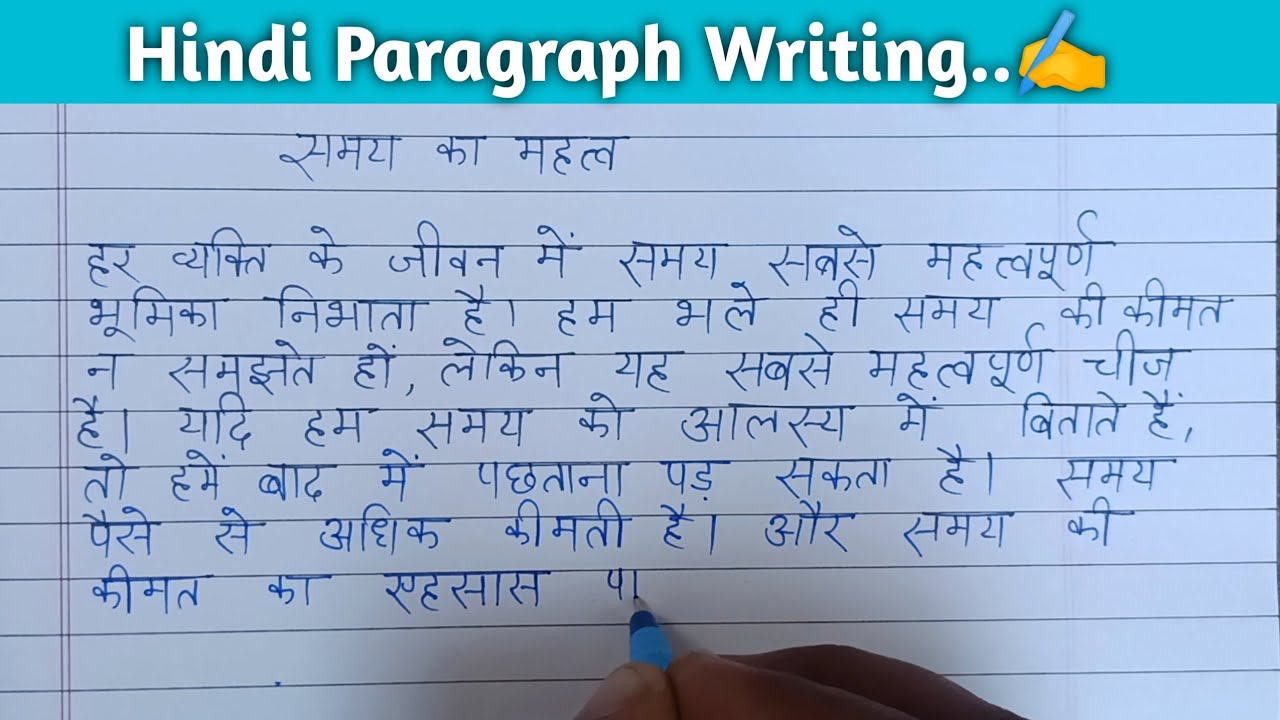 Hindi Paragraph Writing..✍
समय का महत्व
हर व्यक्ति के जीवन में समय सबसे महत्वपूर्ण
भूमिका निभाता है। हम भले ही समय की कीमत
न समझते हों, लेकिन यह सबसे महत्वपूर्ण चीज
है। यदि हम समय को आलस्य में बिताते हैं,
तो हमें बाद में पछताना पड़ सकता है। समय
पैसे से अधिक कीमती है। और समय की
कीमत का एहसास पा